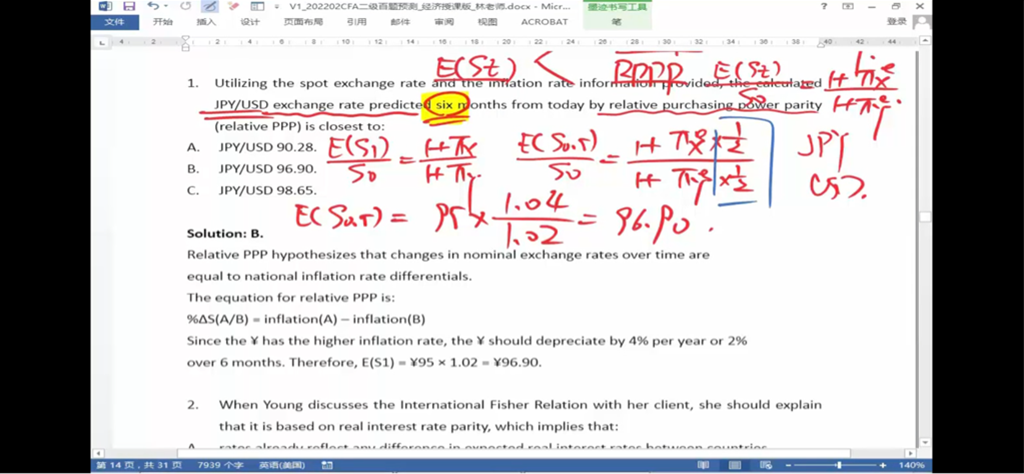 V1_202202CFA二级百题预测_经济授课版_林老师.docx - Micr...
墨迹书写工具
文件 开始 插入 设计 页面布局 引用 邮件 审阅 视图 ACROBAT 笔 登录
E(St) < RPPP E(St)/S0 = 1+πx^e/1+πy^e
1. Utilizing the spot exchange rate and the inflation rate information provided, the calculated
JPY/USD exchange rate predicted six months from today by relative purchasing power parity
(relative PPP) is closest to:
A. JPY/USD 90.28.
B. JPY/USD 96.90.
C. JPY/USD 98.65.
E(S1)/S0 = 1+πx/1+πy E(S0.5)/S0 = 1+πx^e×1/2 / 1+πy^e×1/2 JPY USD.
E(S0.5) = 95 × 1.04/1.02 = 96.90.
Solution: B.
Relative PPP hypothesizes that changes in nominal exchange rates over time are
equal to national inflation rate differentials.
The equation for relative PPP is:
%ΔS(A/B) = inflation(A) – inflation(B)
Since the ¥ has the higher inflation rate, the ¥ should depreciate by 4% per year or 2%
over 6 months. Therefore, E(S1) = ¥95 × 1.02 = ¥96.90.
2. When Young discusses the International Fisher Relation with her client, she should explain
that it is based on real interest rate parity, which implies that:
A. rates already reflect any difference in expected real interest rates between countries
第 14 页，共 31 页 7939 个字 英语(美国) 140%